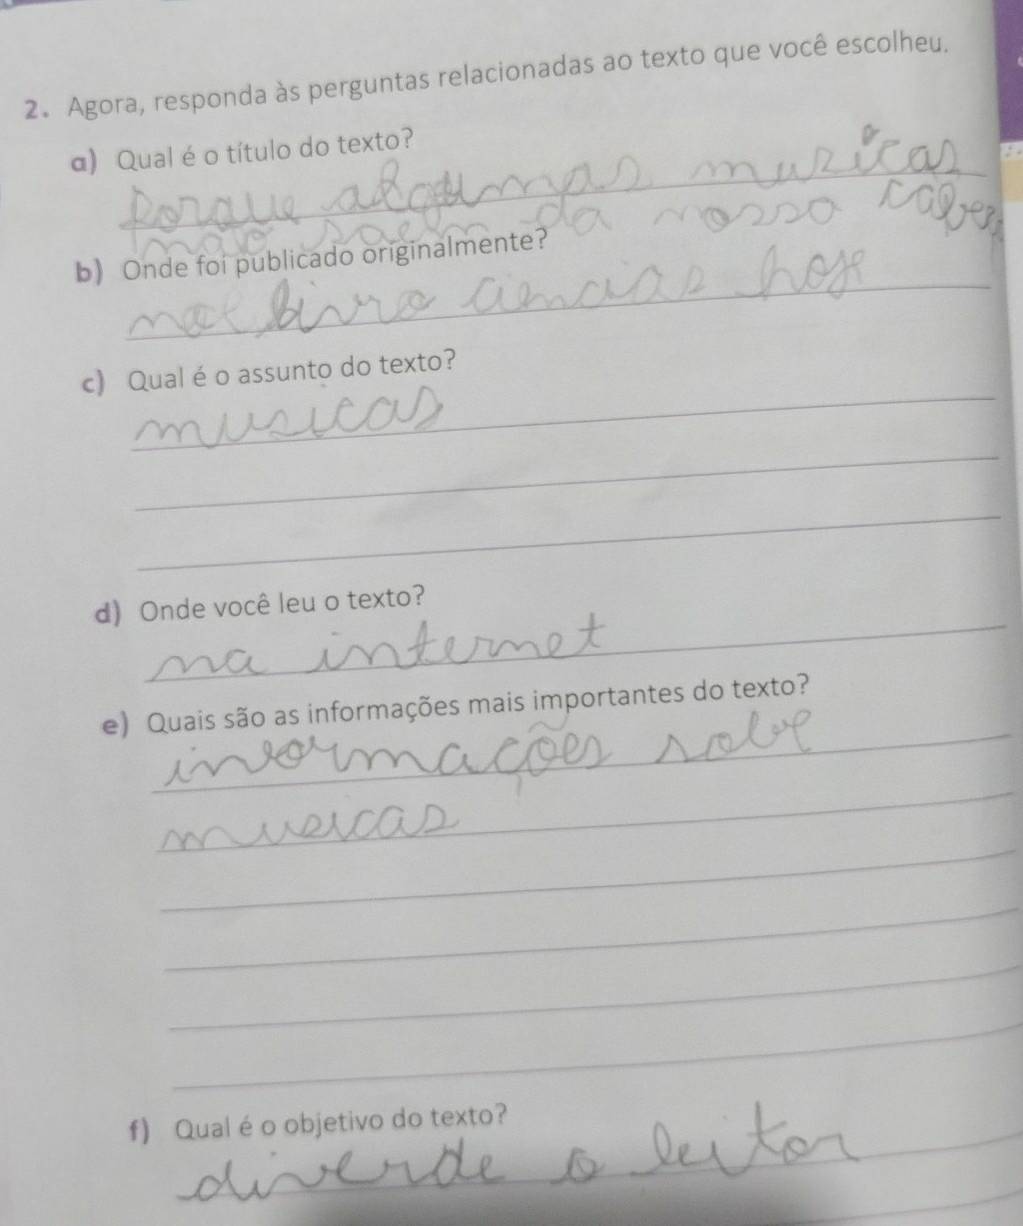 2. Agora, responda às perguntas relacionadas ao texto que você escolheu.
a) Qual é o título do texto?
Porque algumas muzicas
não saem da nosso cabe
b) Onde foi publicado originalmente?
livro ciencias hoje
c) Qual é o assunto do texto?
musicas
d) Onde você leu o texto?
na internet
e) Quais são as informações mais importantes do texto?
informações sobre
musicas
f) Qual é o objetivo do texto?
diverde o leitor